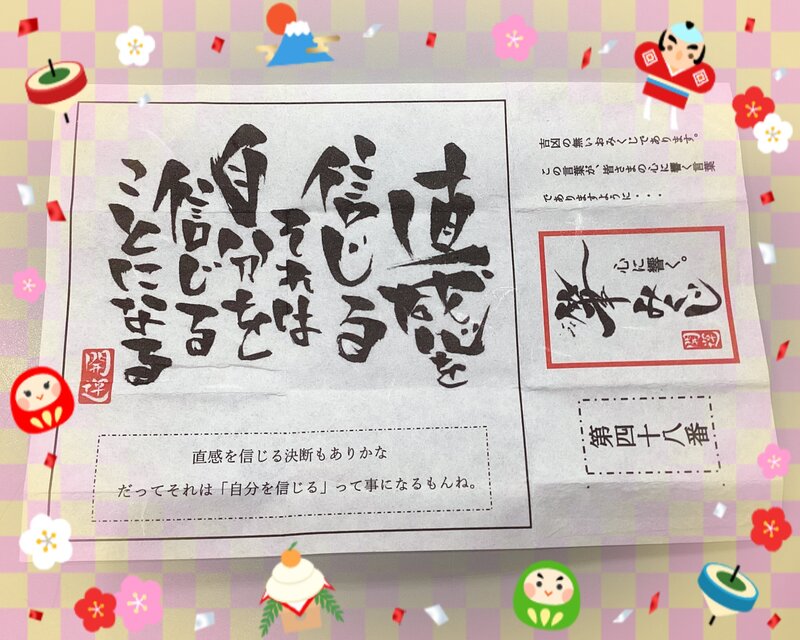 直感を
信じる
それは
自分を
信じる
ことになる
開運
直感を信じる決断もありかな
だってそれは「自分を信じる」って事になるもんね。
吉凶の無いおみくじであります。
この言葉が、皆さまの心に響く言葉
でありますように・・・
心に響く。
筆みくじ
開運
第四十八番